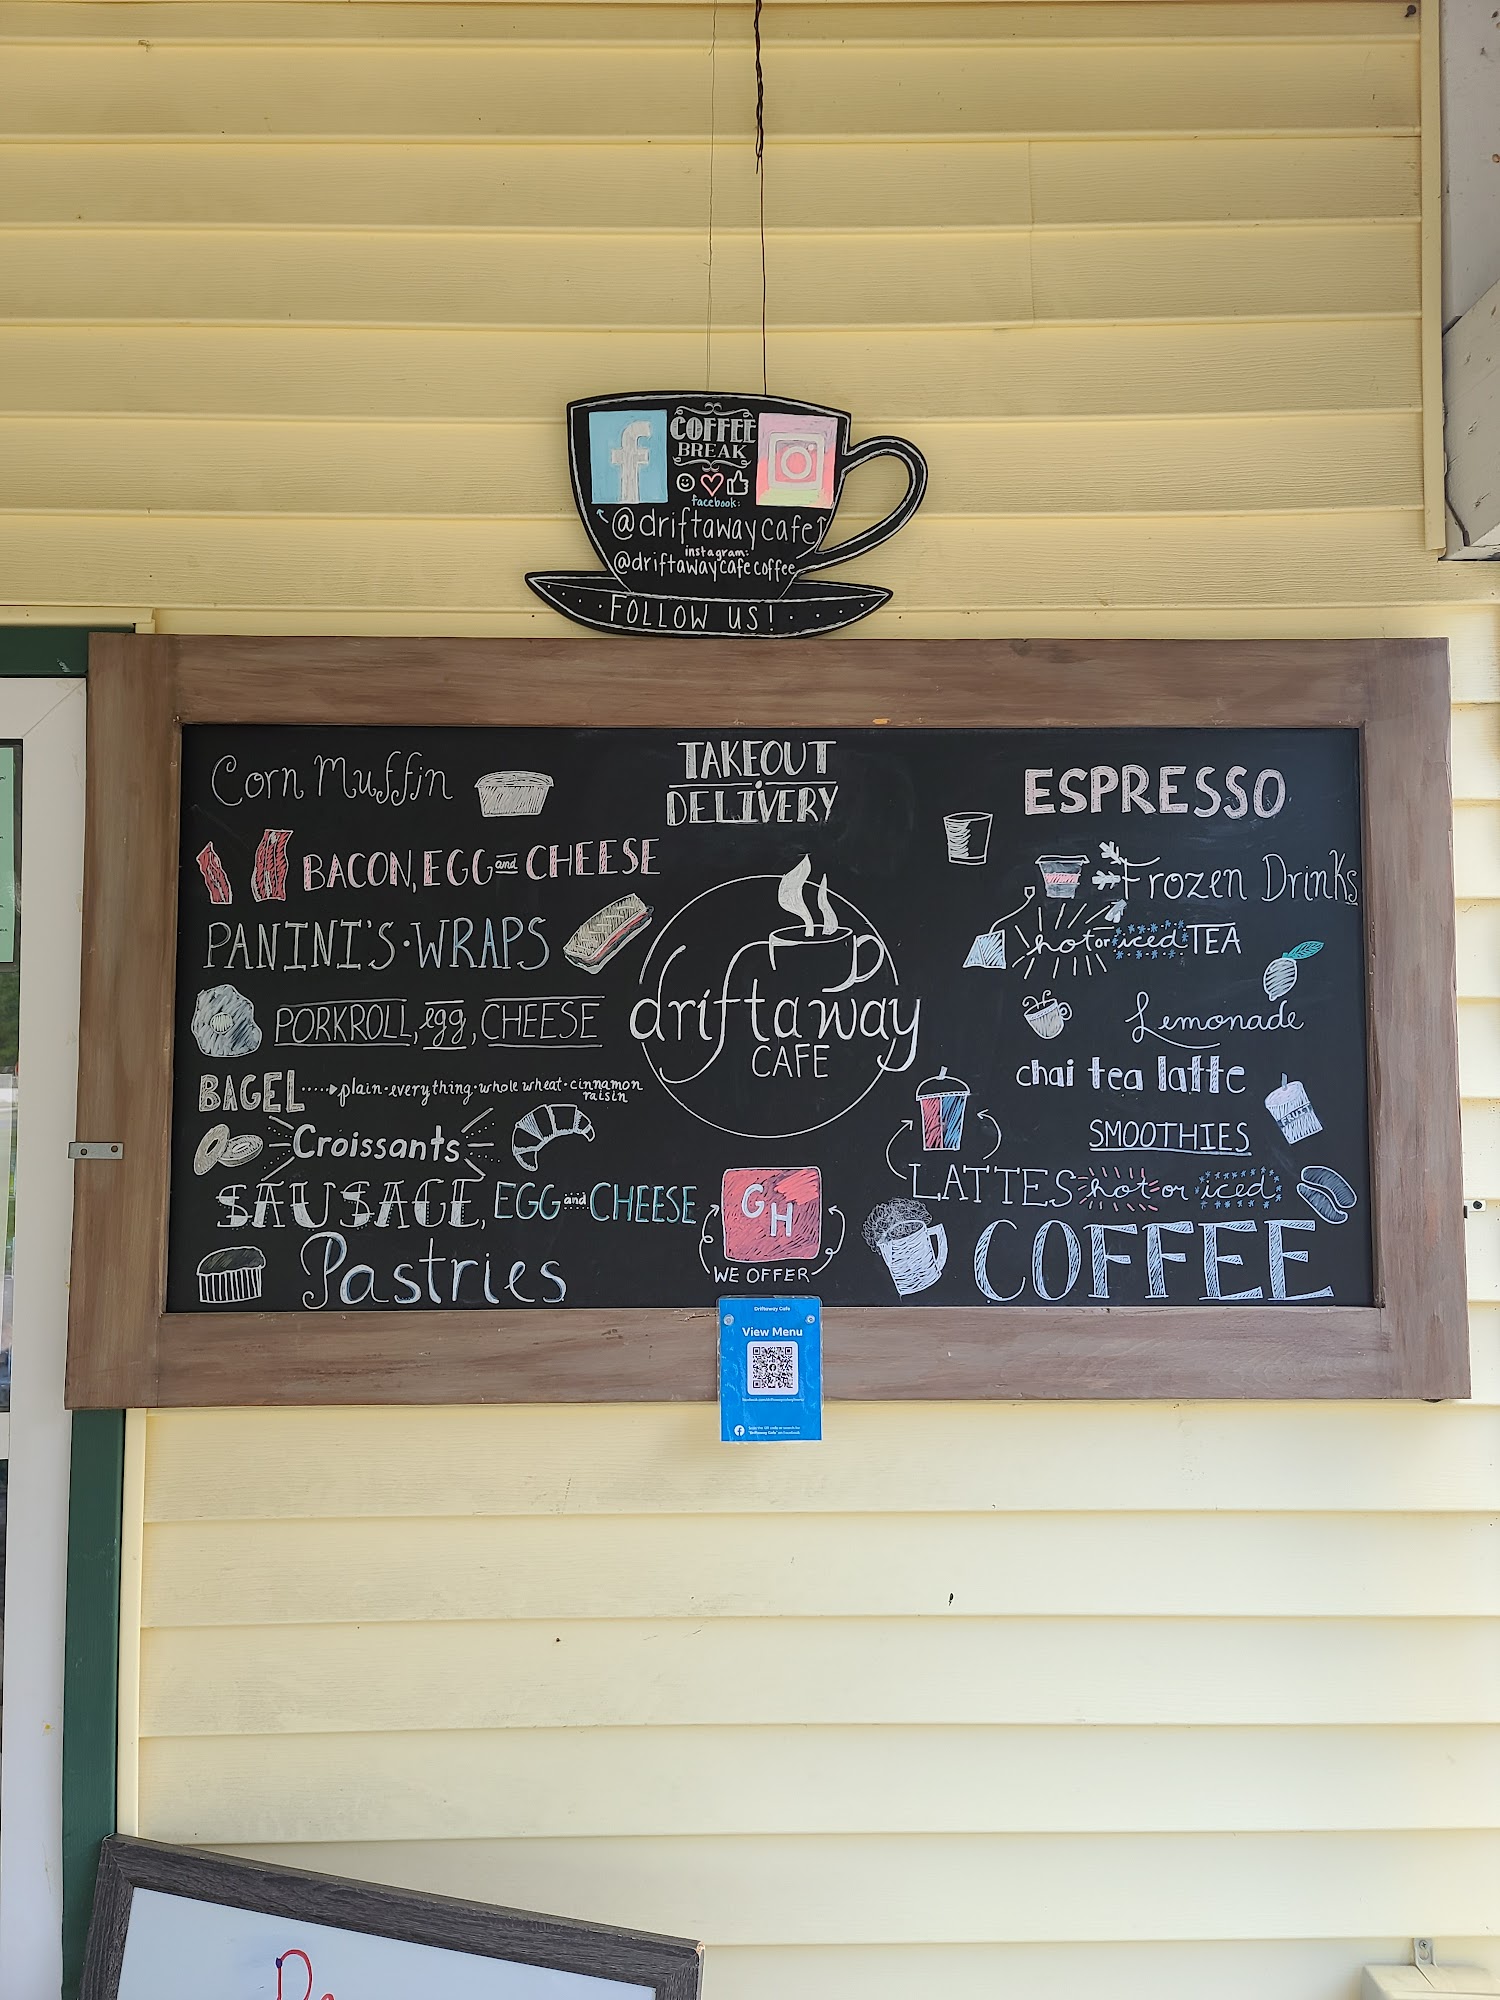 COFFEE
BREAK
facebook:
@driftawaycafe
instagram:
@driftawaycafecoffee
FOLLOW US!
Corn Muffin
BACON, EGG and CHEESE
PANINI'S · WRAPS
PORKROLL, egg, CHEESE
BAGEL plain · everything · whole wheat · cinnamon
raisin
Croissants
SAUSAGE, EGG and CHEESE
Pastries
TAKEOUT
DELIVERY
driftaway
CAFE
GH
WE OFFER
ESPRESSO
Frozen Drinks
hot or iced TEA
Lemonade
chai tea latte
SMOOTHIES
FRUIT
LATTES hot or iced
COFFEE
Driftaway Cafe
View Menu